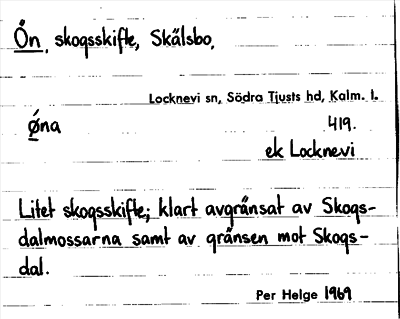 Ön, skogsskifte, Skälsbo,
Locknevi sn, Södra Tjusts hd, Kalm. l.
ǿna 419.
ek Locknevi
Litet skogsskifte; klart avgränsat av Skogs-
dalmossarna samt av gränsen mot Skogs-
dal.
Per Helge 1969